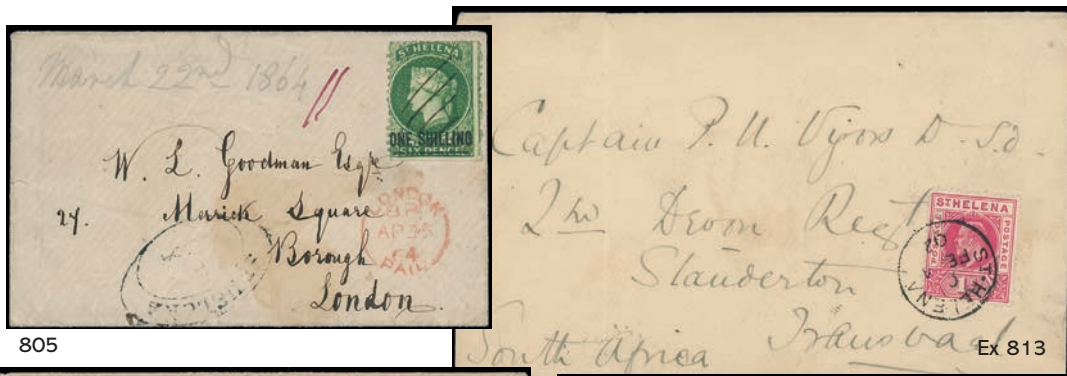 March 22nd 1864
ST HELENA
ONE SHILLING
SIX PENCE
W. L. Goodman Esqre
24. Merrick Square
Borough
London
LONDON
AP
64
PAID
805
Captain P. U. Vigors D.S.O.
2nd Devon Regt
Standerton
Transvaal
South Africa
ST HELENA
POSTAGE
ST. HELENA
C
FE
02
Ex 813